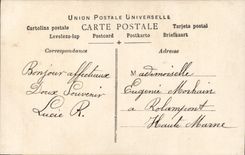 UNION POSTALE UNIVERSELLE
Cartolina postale CARTE POSTALE Tarjeta postal
Levelezo-lap Postcard Postkarto Briefkaart
Correspondance
Adresse
Bonjour affectueux
Doux Souvenir
Lucie R.
Mademoiselle
Eugénie Morhain
à Rolampont
Haute Marne